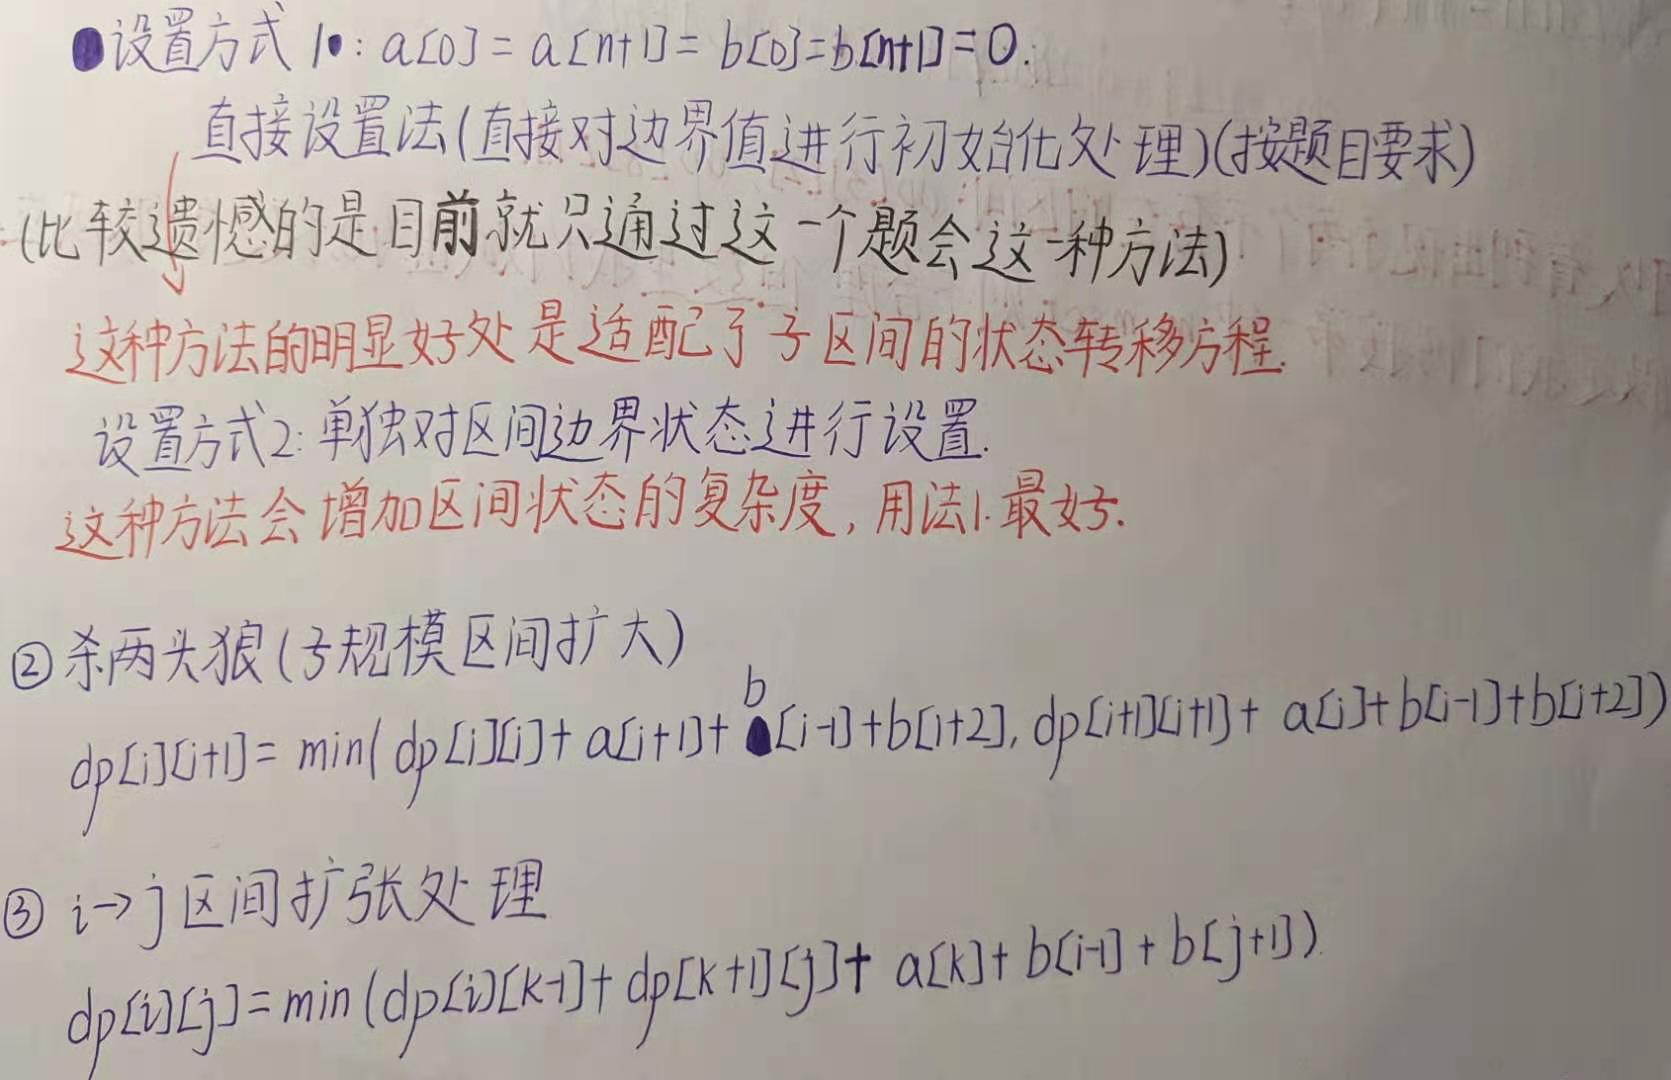 设置方式1:a[0]=a[n+1]=b[0]=b[n+1]=0.
直接设置法(直接对边界值进行初始化处理)(按题目要求)
(比较遗憾的是目前就只通过这一个题会这一种方法)
这种方法的明显好处是适配了子区间的状态转移方程.
设置方式2:单独对区间边界状态进行设置.
这种方法会增加区间状态的复杂度,用法1.最好.
②杀两头狼(子规模区间扩大)
dp[i][i+1]=min(dp[i][i]+a[i+1]+b[i-1]+b[i+2],dp[i+1][i+1]+a[i]+b[i-1]+b[i+2])
③i→j区间扩张处理
dp[i][j]=min(dp[i][k-1]+dp[k+1][j]+a[k]+b[i-1]+b[j+1]).